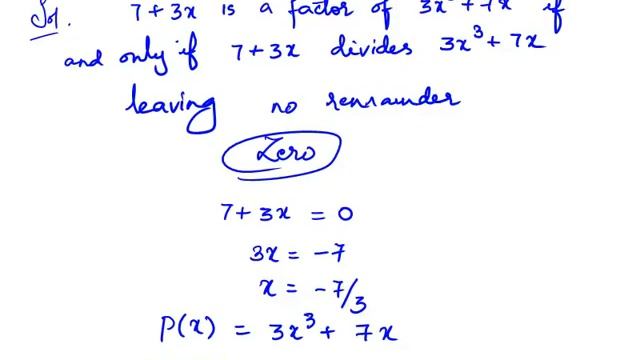 Sol. 7 + 3x is a factor of 3x³ + 7x if
and only if 7 + 3x divides 3x³ + 7x
leaving no remainder
Zero
7 + 3x = 0
3x = -7
x = -7/3
P(x) = 3x³ + 7x